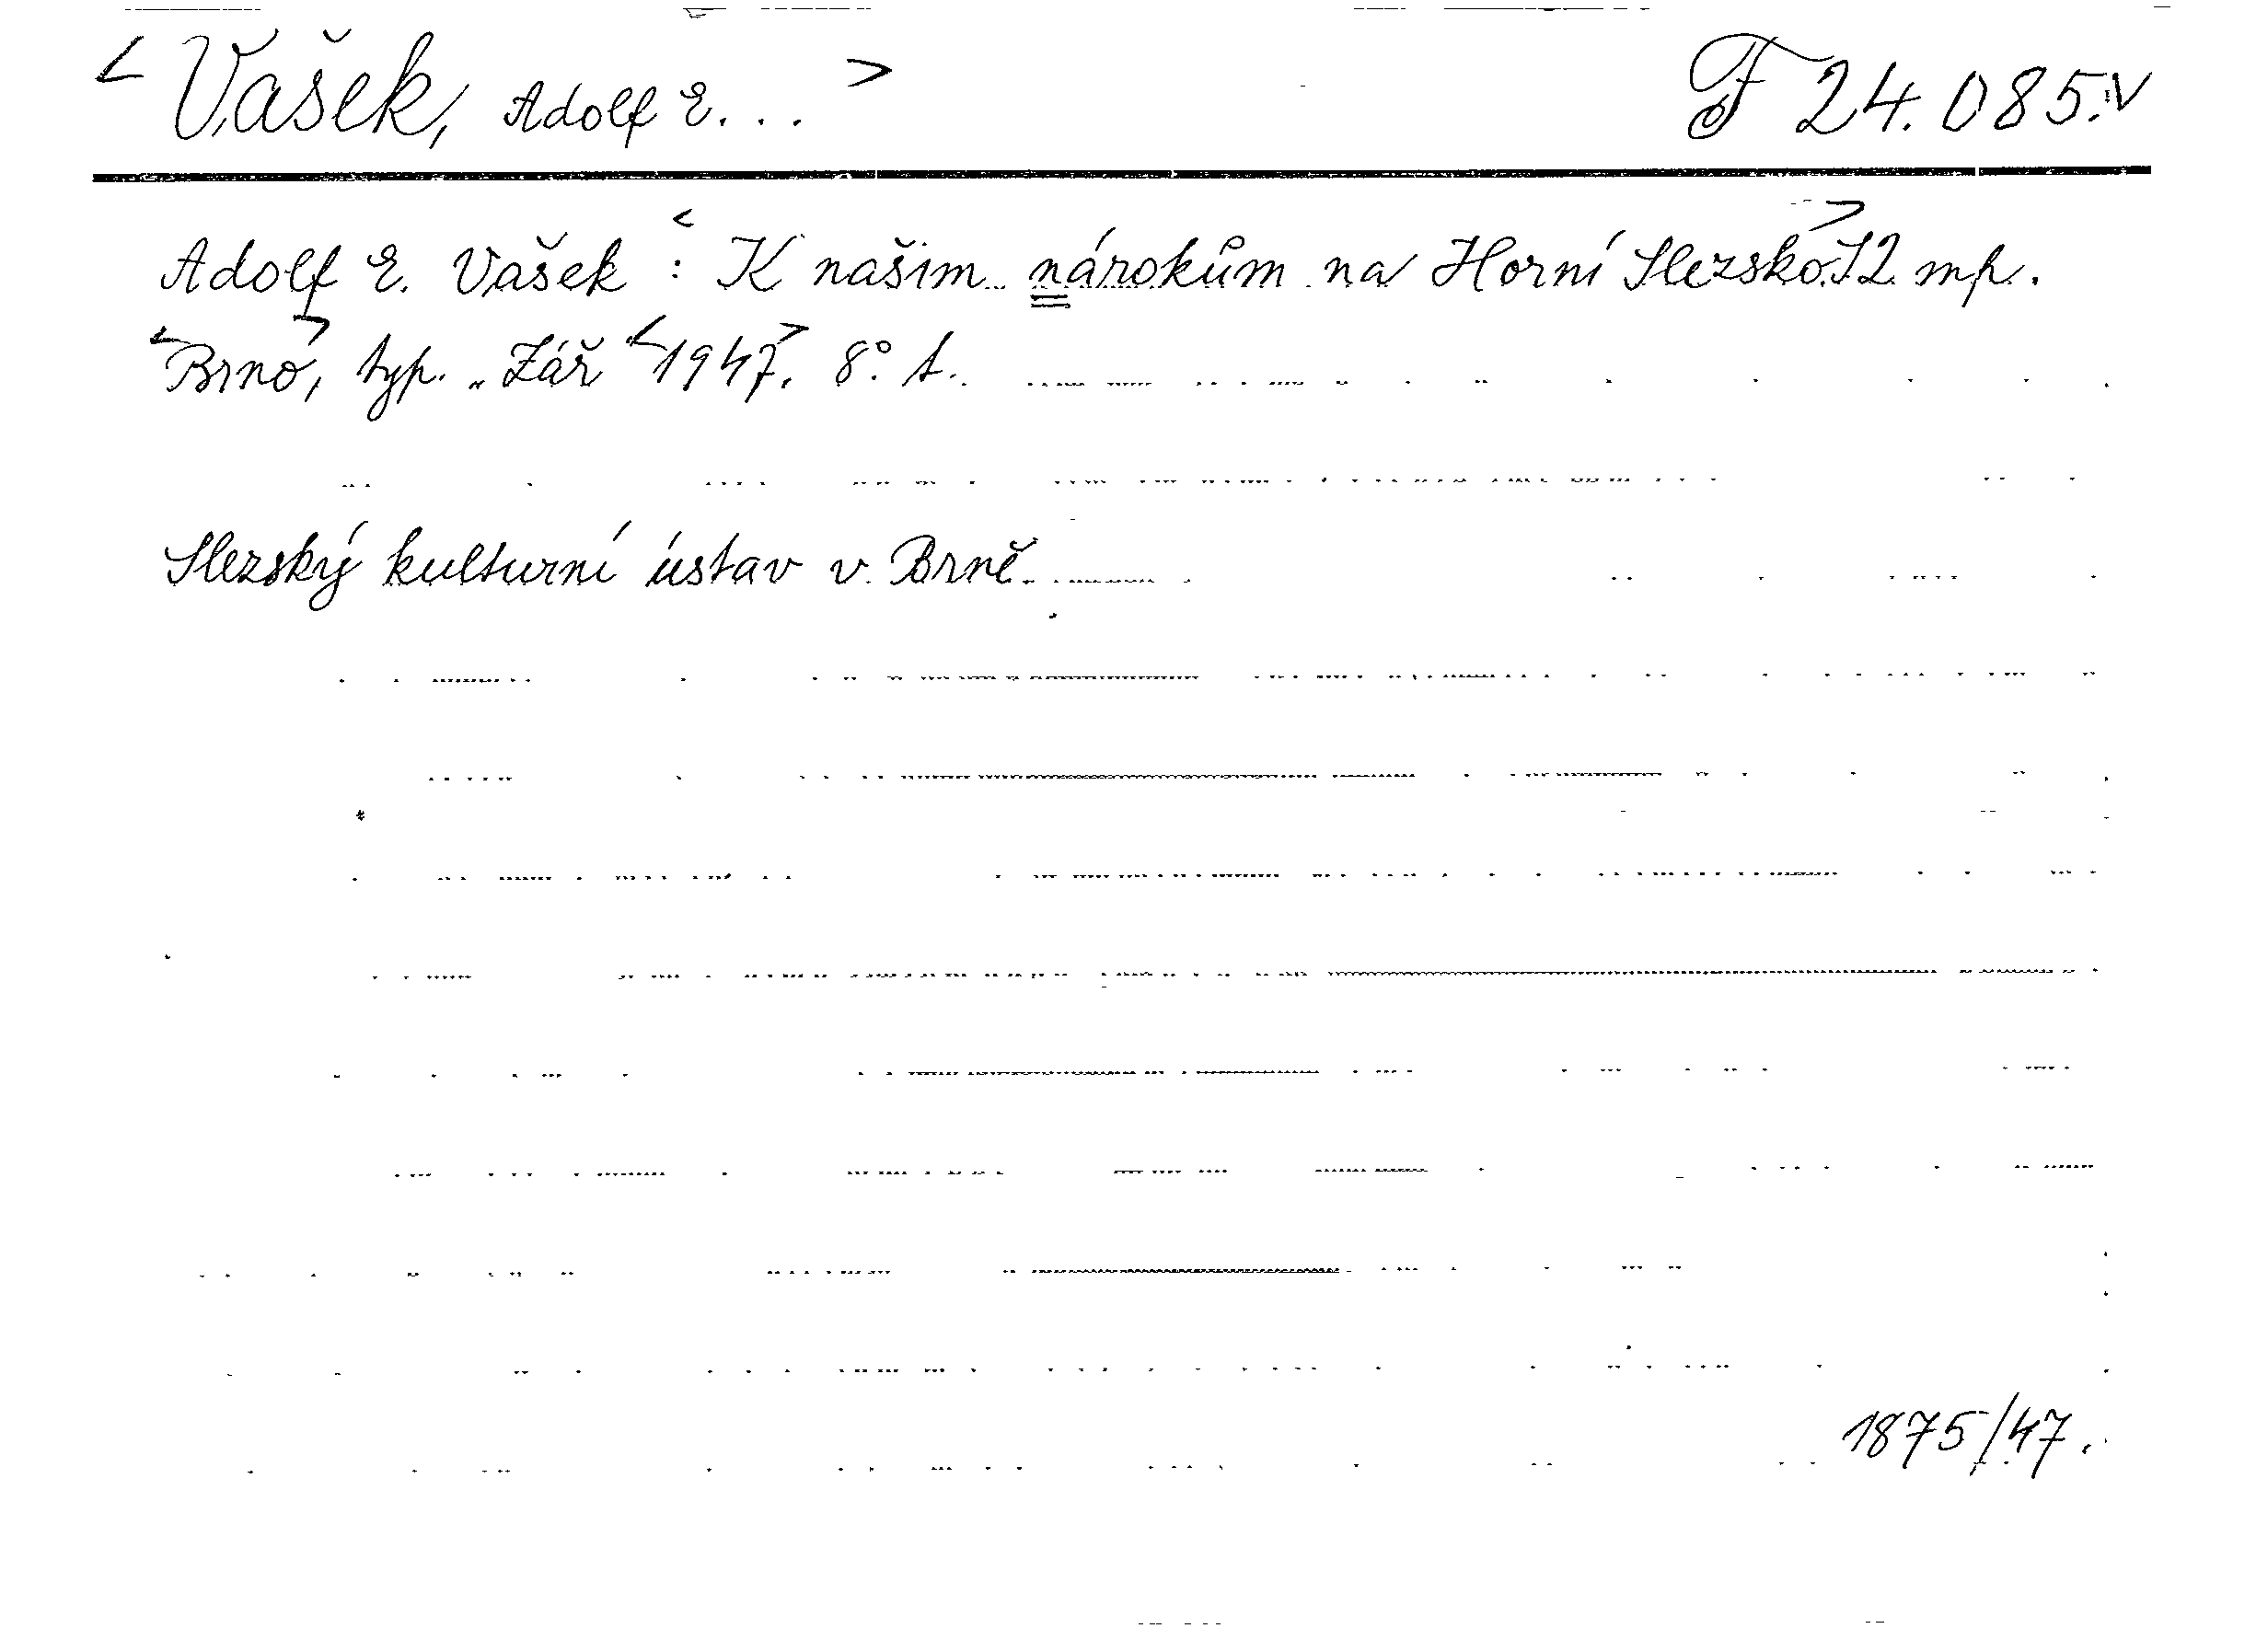 <Vašek, Adolf E...> F 24.085.v
Adolf E. Vašek: <K našim nárokům na Horní Slezsko.> 12 mp.
<Brno>, typ. „Zář" <1947>. 8°. t.
Slezský kulturní ústav v Brně.
1875/47.